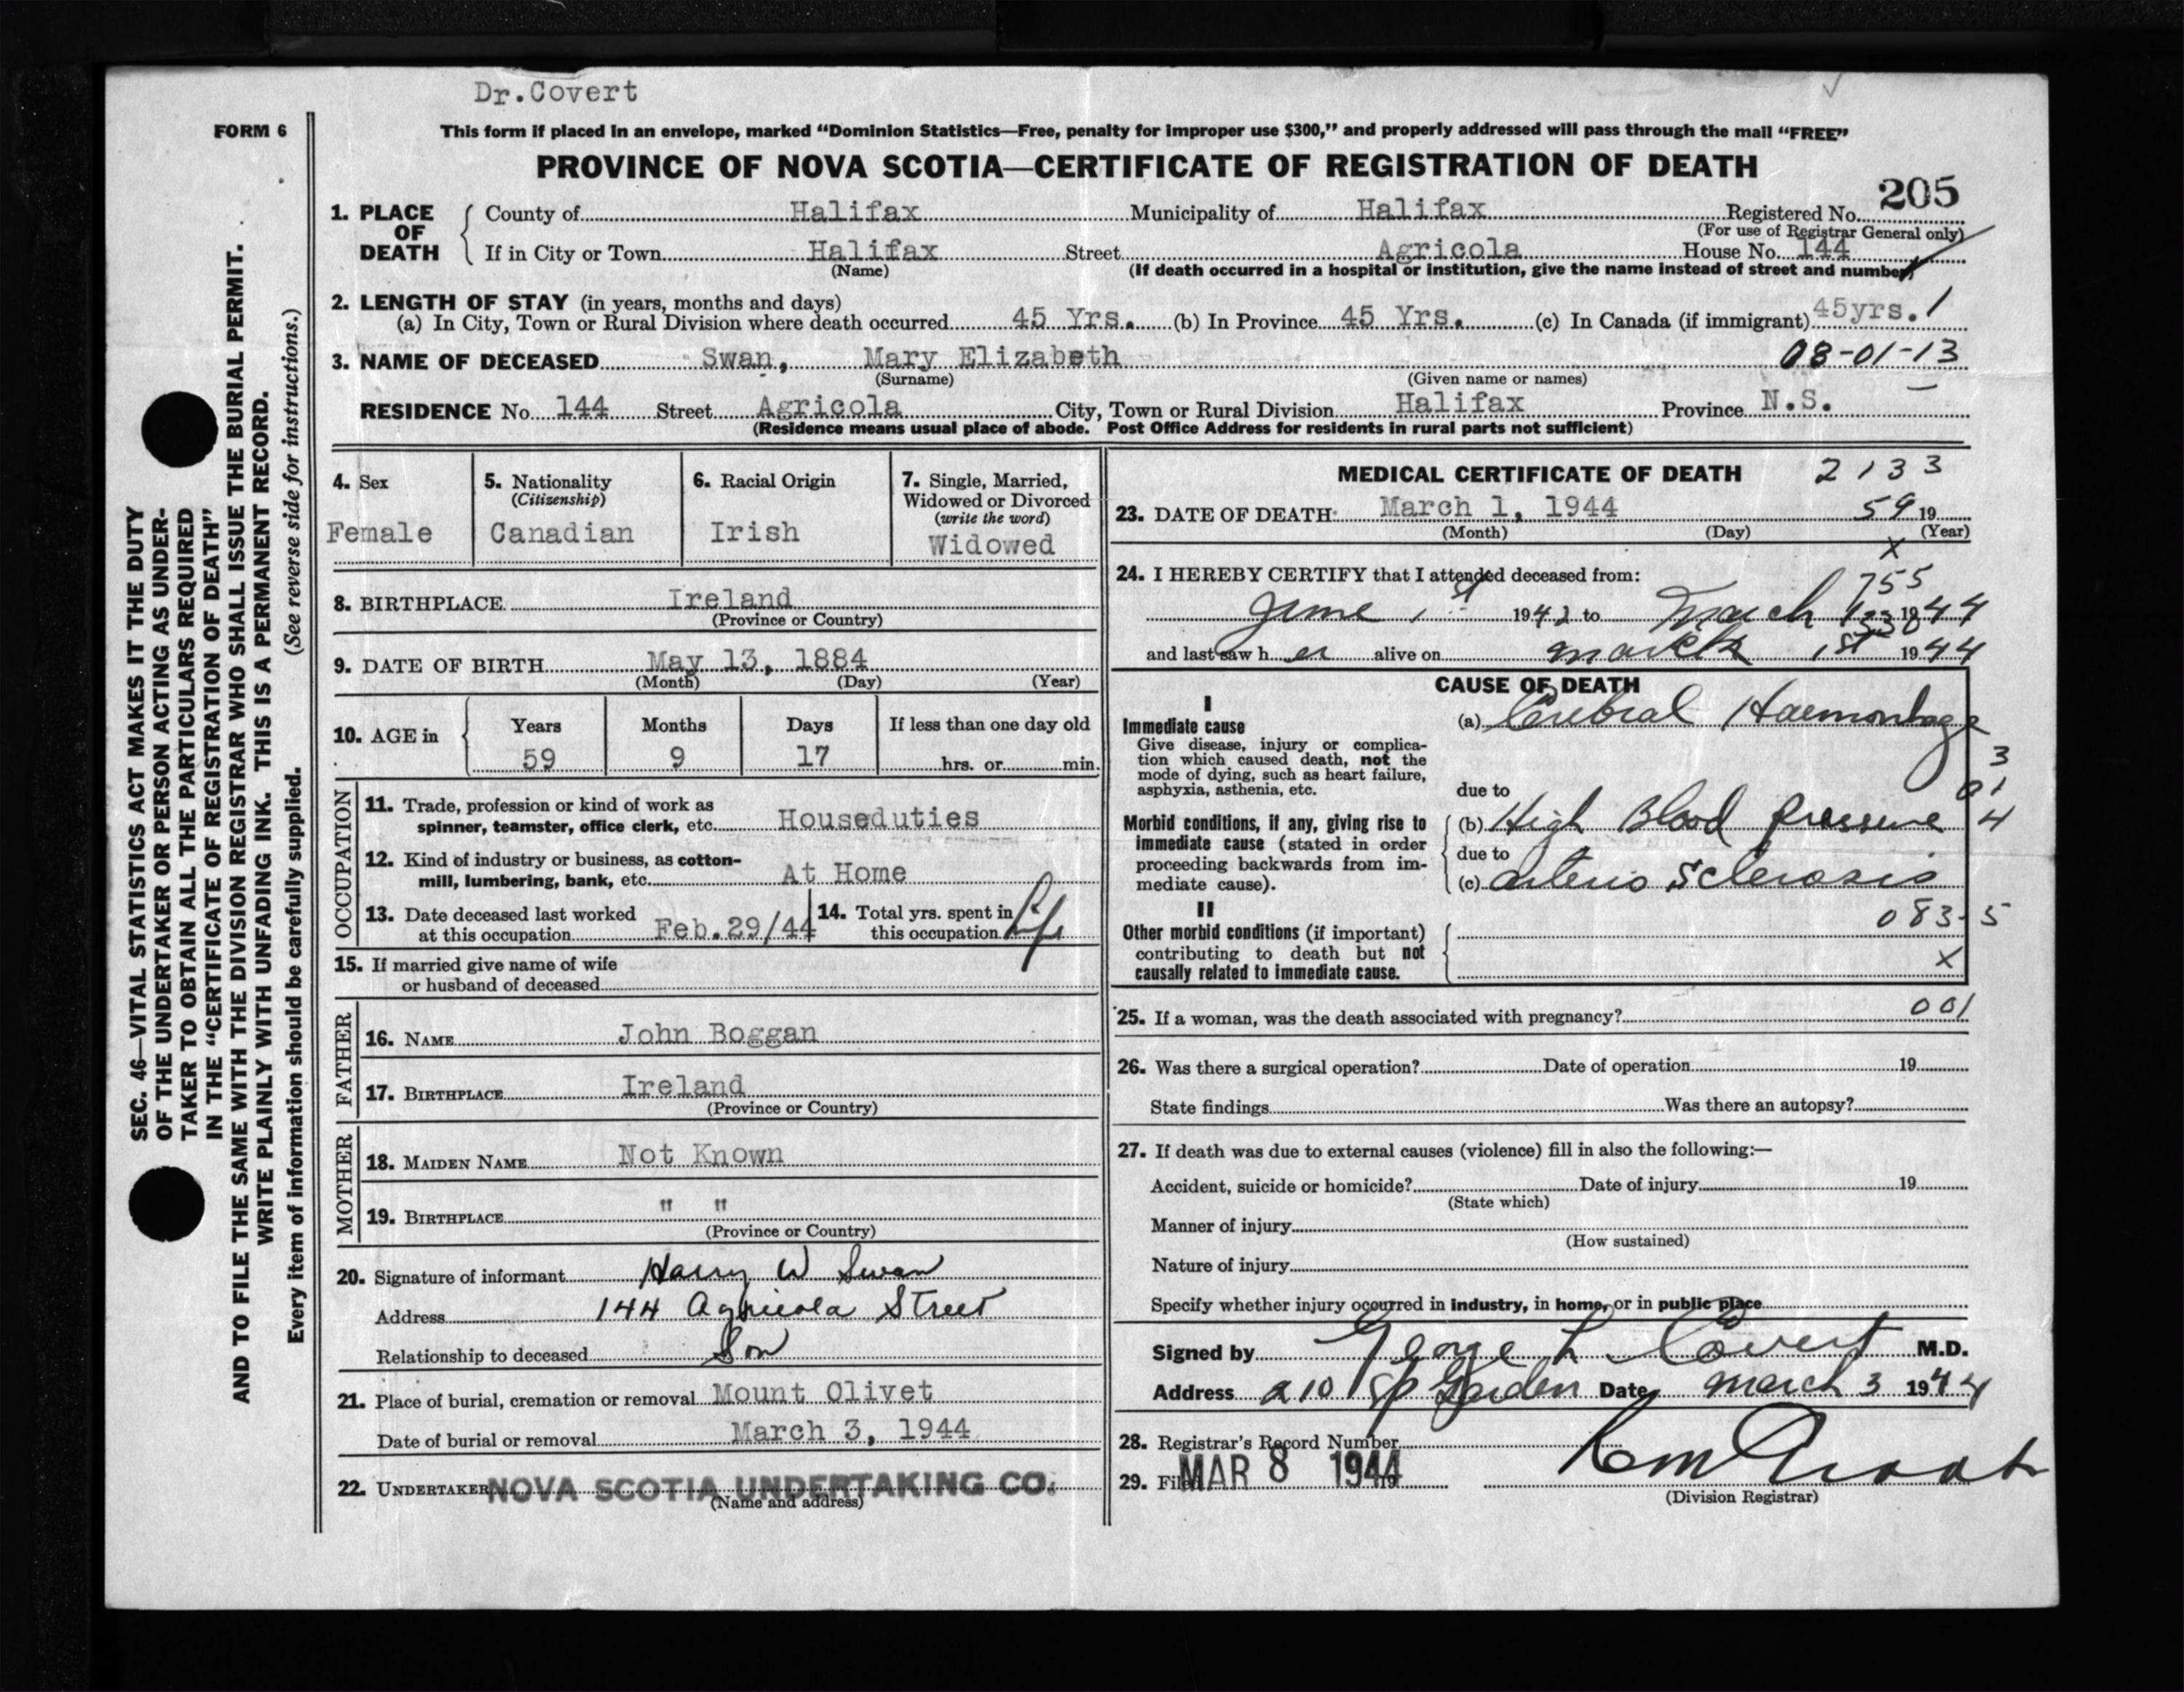 Dr.Covert
FORM 6
This form if placed in an envelope, marked “Dominion Statistics—Free, penalty for improper use $300,” and properly addressed will pass through the mail “FREE”
PROVINCE OF NOVA SCOTIA—CERTIFICATE OF REGISTRATION OF DEATH
205
1. PLACE OF DEATH
County of Halifax Municipality of Halifax Registered No.
(For use of Registrar General only)
If in City or Town Halifax Street Agricola House No. 144
(Name) (If death occurred in a hospital or institution, give the name instead of street and number)
2. LENGTH OF STAY (in years, months and days)
(a) In City, Town or Rural Division where death occurred 45 Yrs. (b) In Province 45 Yrs. (c) In Canada (if immigrant) 45yrs. 1
3. NAME OF DECEASED Swan, Mary Elizabeth 08-01-13
(Surname) (Given name or names)
RESIDENCE No. 144 Street Agricola City, Town or Rural Division Halifax Province N.S.
(Residence means usual place of abode. Post Office Address for residents in rural parts not sufficient)
4. Sex
Female
5. Nationality
(Citizenship)
Canadian
6. Racial Origin
Irish
7. Single, Married,
Widowed or Divorced
(write the word)
Widowed
8. BIRTHPLACE Ireland
(Province or Country)
9. DATE OF BIRTH May 13, 1884
(Month) (Day) (Year)
10. AGE in
Years Months Days If less than one day old
59 9 17 hrs. or min.
OCCUPATION
11. Trade, profession or kind of work as
spinner, teamster, office clerk, etc. Houseduties
12. Kind of industry or business, as cotton-
mill, lumbering, bank, etc. At Home
13. Date deceased last worked
at this occupation Feb.29/44
14. Total yrs. spent in
this occupation Life
15. If married give name of wife
or husband of deceased
FATHER
16. NAME John Boggan
17. BIRTHPLACE Ireland
(Province or Country)
MOTHER
18. MAIDEN NAME Not Known
19. BIRTHPLACE " "
(Province or Country)
20. Signature of informant Harry W Swan
Address 144 Agricola Street
Relationship to deceased Son
21. Place of burial, cremation or removal Mount Olivet
Date of burial or removal March 3, 1944
22. UNDERTAKER NOVA SCOTIA UNDERTAKING CO.
(Name and address)
MEDICAL CERTIFICATE OF DEATH 2133
23. DATE OF DEATH March 1, 1944 59 19
(Month) (Day) (Year)
x
24. I HEREBY CERTIFY that I attended deceased from:
755
June 1st 1942 to March 1 1944
330
and last saw her alive on March 1st 1944
CAUSE OF DEATH
I
Immediate cause
Give disease, injury or complica-
tion which caused death, not the
mode of dying, such as heart failure,
asphyxia, asthenia, etc.
(a) Cerebral Haemorrhage
3
due to 01
Morbid conditions, if any, giving rise to
immediate cause (stated in order
proceeding backwards from im-
mediate cause).
(b) High Blood pressure 4
due to
(c) Arterio Sclerosis
II
083-5
Other morbid conditions (if important)
contributing to death but not
causally related to immediate cause.
x
25. If a woman, was the death associated with pregnancy? 001
26. Was there a surgical operation? Date of operation 19
State findings Was there an autopsy?
27. If death was due to external causes (violence) fill in also the following:—
Accident, suicide or homicide? Date of injury 19
(State which)
Manner of injury
(How sustained)
Nature of injury
Specify whether injury occurred in industry, in home, or in public place
Signed by George L Covert M.D.
Address 210 Sp Garden Date March 3 1944
28. Registrar's Record Number
29. Filed MAR 8 1944 19
(Division Registrar)
SEC. 46—VITAL STATISTICS ACT MAKES IT THE DUTY
OF THE UNDERTAKER OR PERSON ACTING AS UNDER-
TAKER TO OBTAIN ALL THE PARTICULARS REQUIRED
IN THE “CERTIFICATE OF REGISTRATION OF DEATH”
AND TO FILE THE SAME WITH THE DIVISION REGISTRAR WHO SHALL ISSUE THE BURIAL PERMIT.
WRITE PLAINLY WITH UNFADING INK. THIS IS A PERMANENT RECORD.
Every item of information should be carefully supplied. (See reverse side for instructions.)